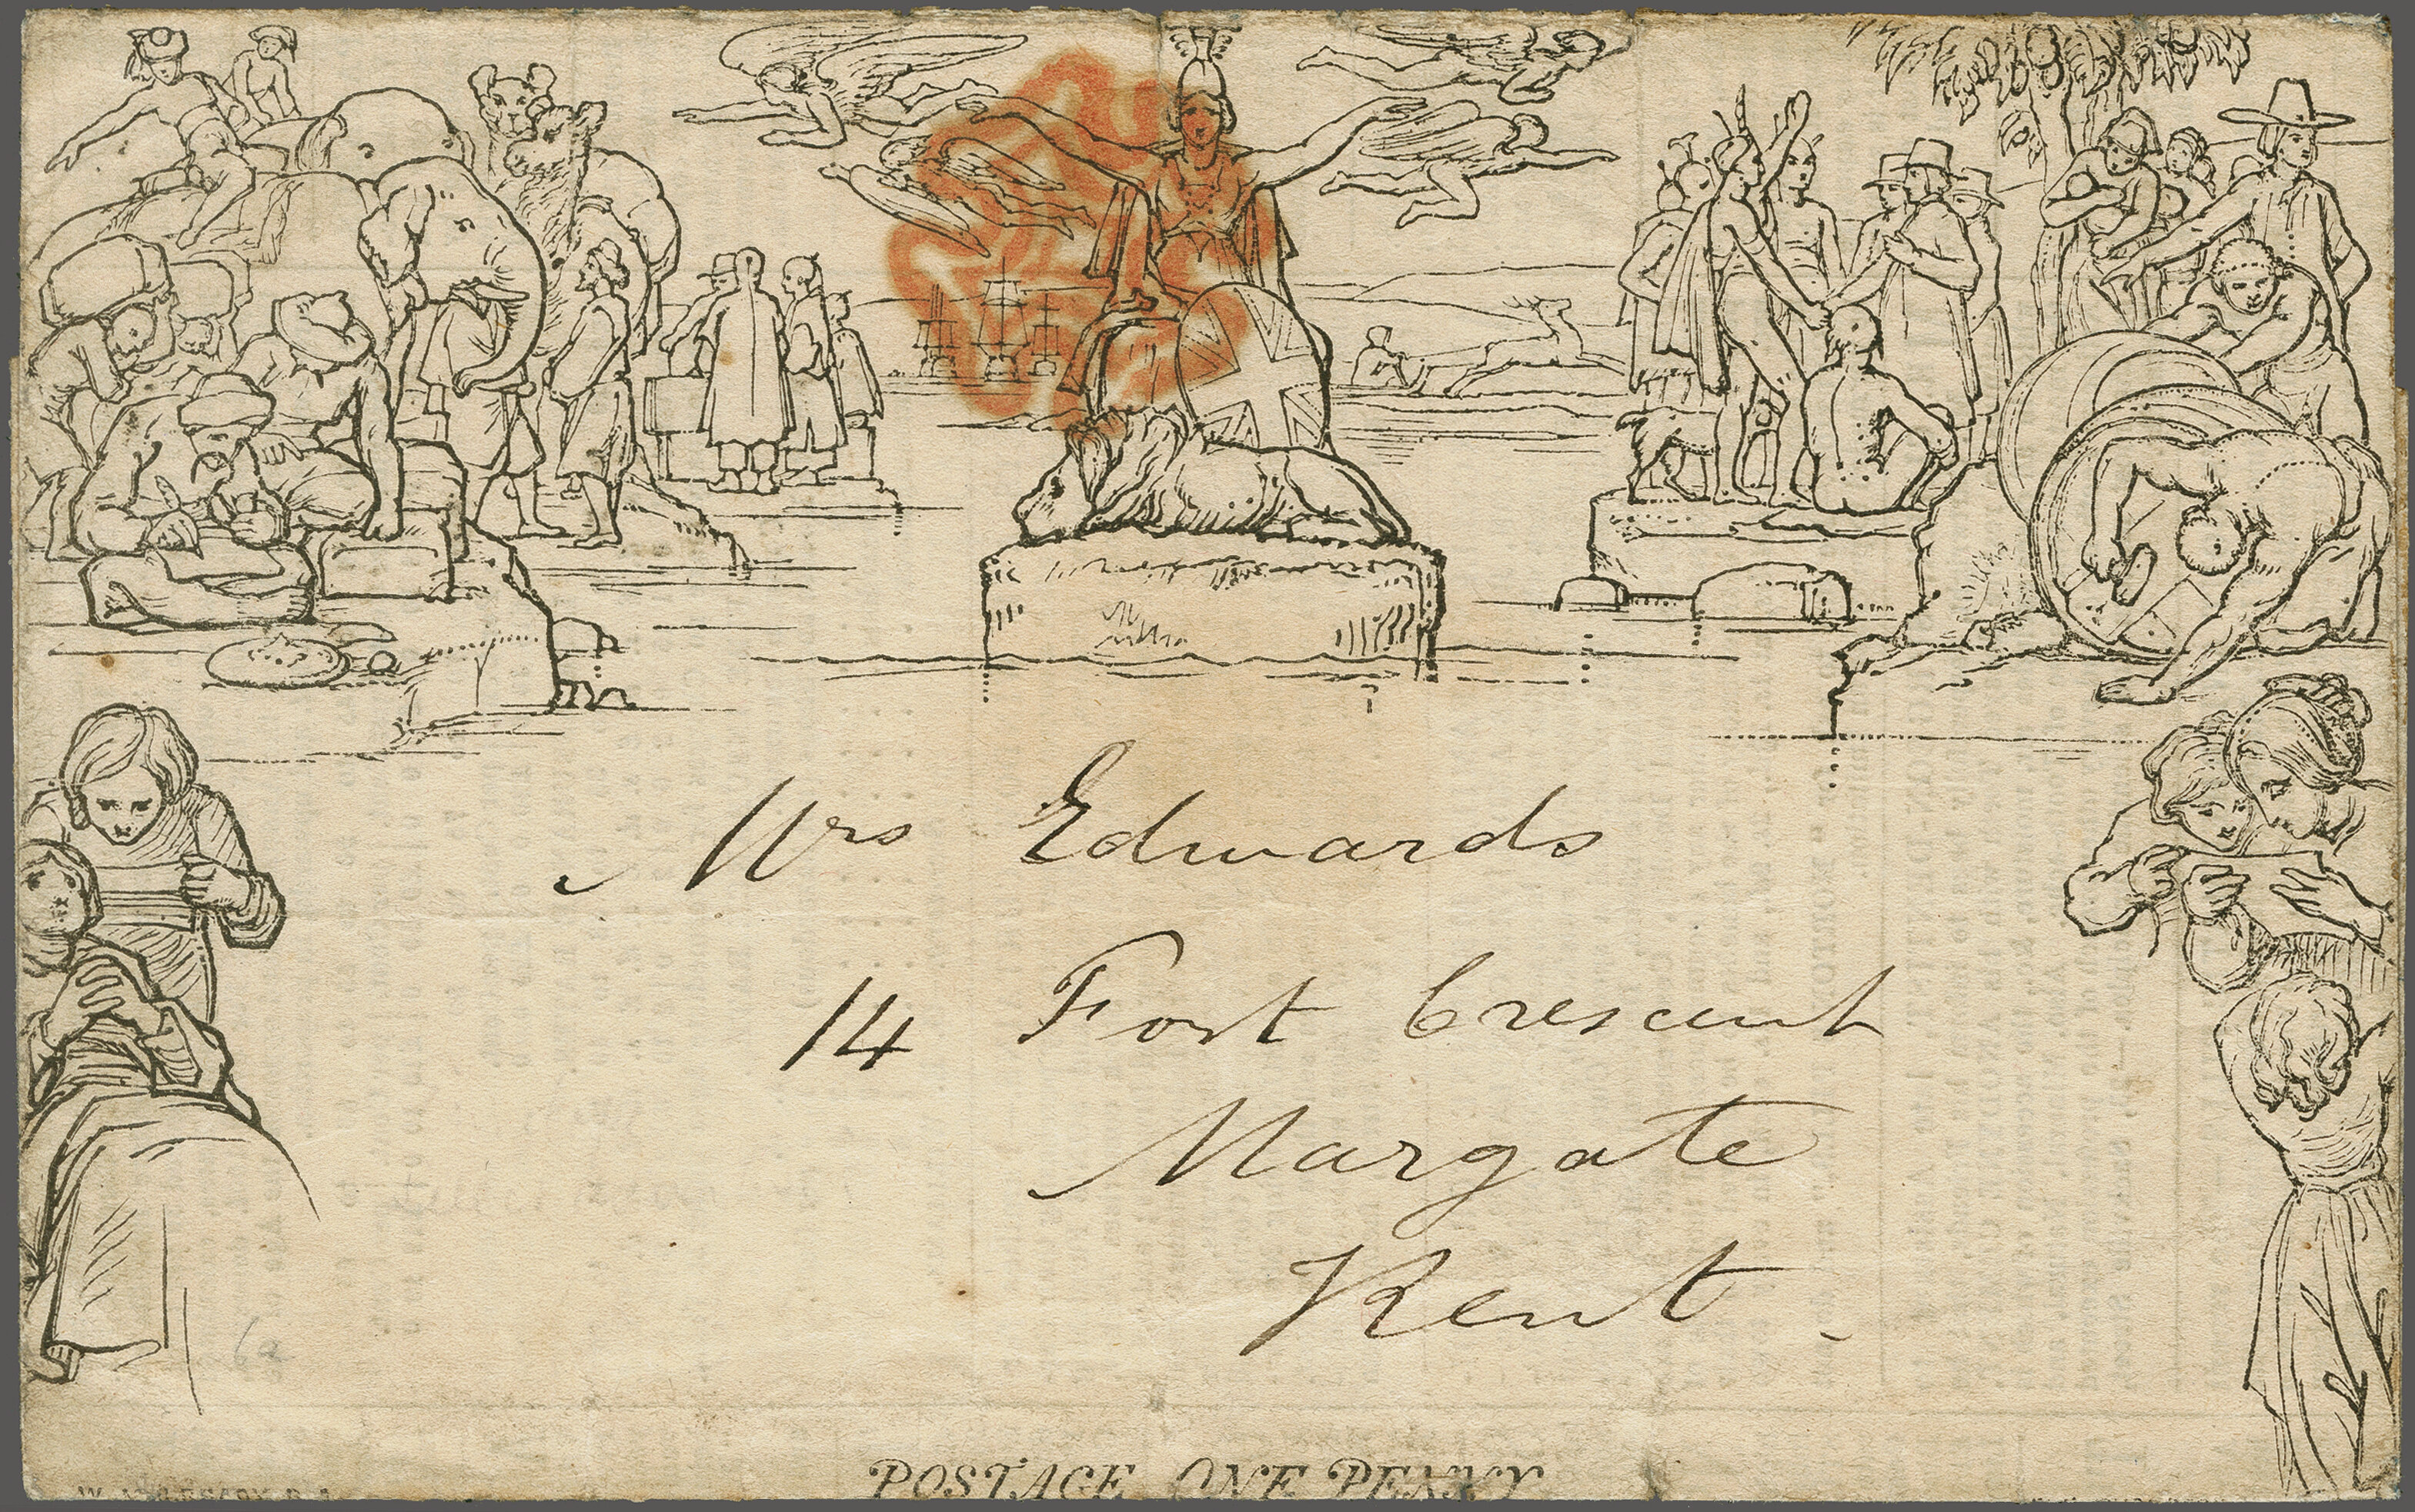 Mrs Edwards
14 Fort Crescent
Margate
Kent.
POSTAGE ONE PENNY